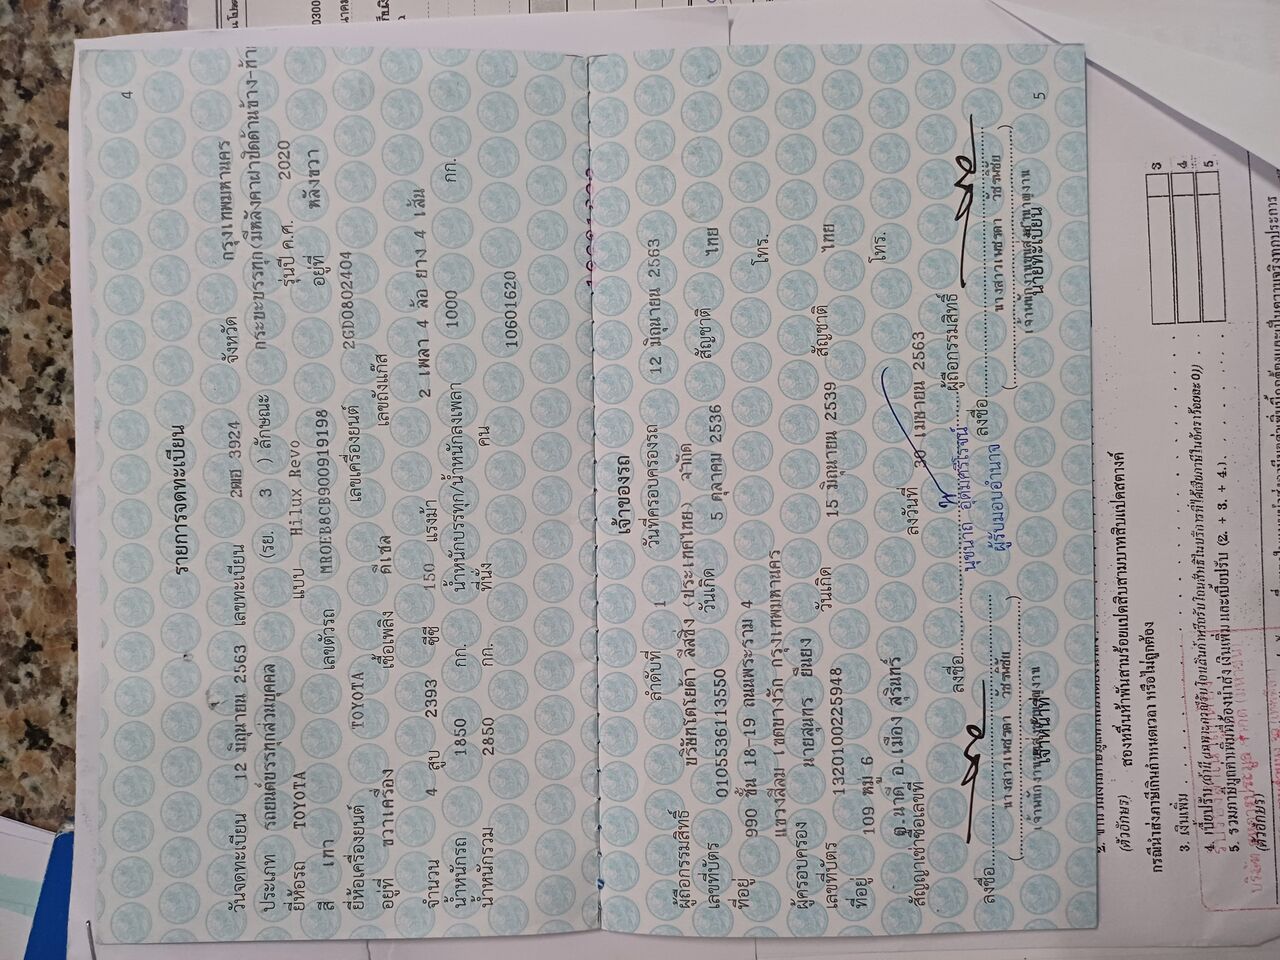 4
รายการจดทะเบียน
วันจดทะเบียน 12 มิถุนายน 2563 เลขทะเบียน 2ฒฮ 3924 จังหวัด กรุงเทพมหานคร
ประเภท รถยนต์บรรทุกส่วนบุคคล (รย. 3 ) ลักษณะ กระบะบรรทุก(มีหลังคาฝาปิดด้านข้าง-ท้าย
ยี่ห้อรถ TOYOTA แบบ Hilux Revo รุ่นปี ค.ศ. 2020
สี เทา เลขตัวรถ MR0EB8CB900919198 อยู่ที่ หลังขวา
ยี่ห้อเครื่องยนต์ TOYOTA เลขเครื่องยนต์ 2GD0802404
อยู่ที่ ขวาเครื่อง เชื้อเพลิง ดีเซล เลขถังแก๊ส
จำนวน 4 สูบ 2393 ซีซี 150 แรงม้า 2 เพลา 4 ล้อ ยาง 4 เส้น
น้ำหนักรถ 1850 กก. น้ำหนักบรรทุก/น้ำหนักลงเพลา 1000 กก.
น้ำหนักรวม 2850 กก. ที่นั่ง คน 10601620
เจ้าของรถ
ลำดับที่ 1 วันที่ครอบครองรถ 12 มิถุนายน 2563
ผู้ถือกรรมสิทธิ์ บริษัทโตโยต้า ลีสซิ่ง (ประเทศไทย) จำกัด
เลขที่บัตร 0105536113550 วันเกิด 5 ตุลาคม 2536 สัญชาติ ไทย
ที่อยู่ 990 ชั้น 18-19 ถนนพระราม 4
แขวงสีลม เขตบางรัก กรุงเทพมหานคร โทร.
ผู้ครอบครอง นายสุนทร ยืนยง
เลขที่บัตร 1320100225948 วันเกิด 15 มิถุนายน 2539 สัญชาติ ไทย
ที่อยู่ 109 หมู่ 6
ต.นาดี อ.เมือง สุรินทร์ โทร.
สัญญาเช่าซื้อเลขที่ ลงวันที่ 30 เมษายน 2563
ลงชื่อ ผู้ถือกรรมสิทธิ์
ผู้รับมอบอำนาจ
ลงชื่อ ลงชื่อ
นางสาวเพชรดา วัชรพชัย นางสาวเพชรดา วัชรพชัย
เจ้าหน้าที่ นายทะเบียน
5
(ตัวอักษร) สองหมื่นห้าพันสามร้อยแปดสิบสามบาทสิบแปดสตางค์
กรณีนำส่งภาษีเกินกำหนดเวลา หรือไม่ถูกต้อง
3. เงินเพิ่ม 3
4. เบี้ยปรับ 4
5. รวมภาษีมูลค่าเพิ่มที่ต้องนำส่ง เงินเพิ่ม และเบี้ยปรับ (2. + 3. + 4.) 5
(ตัวอักษร)